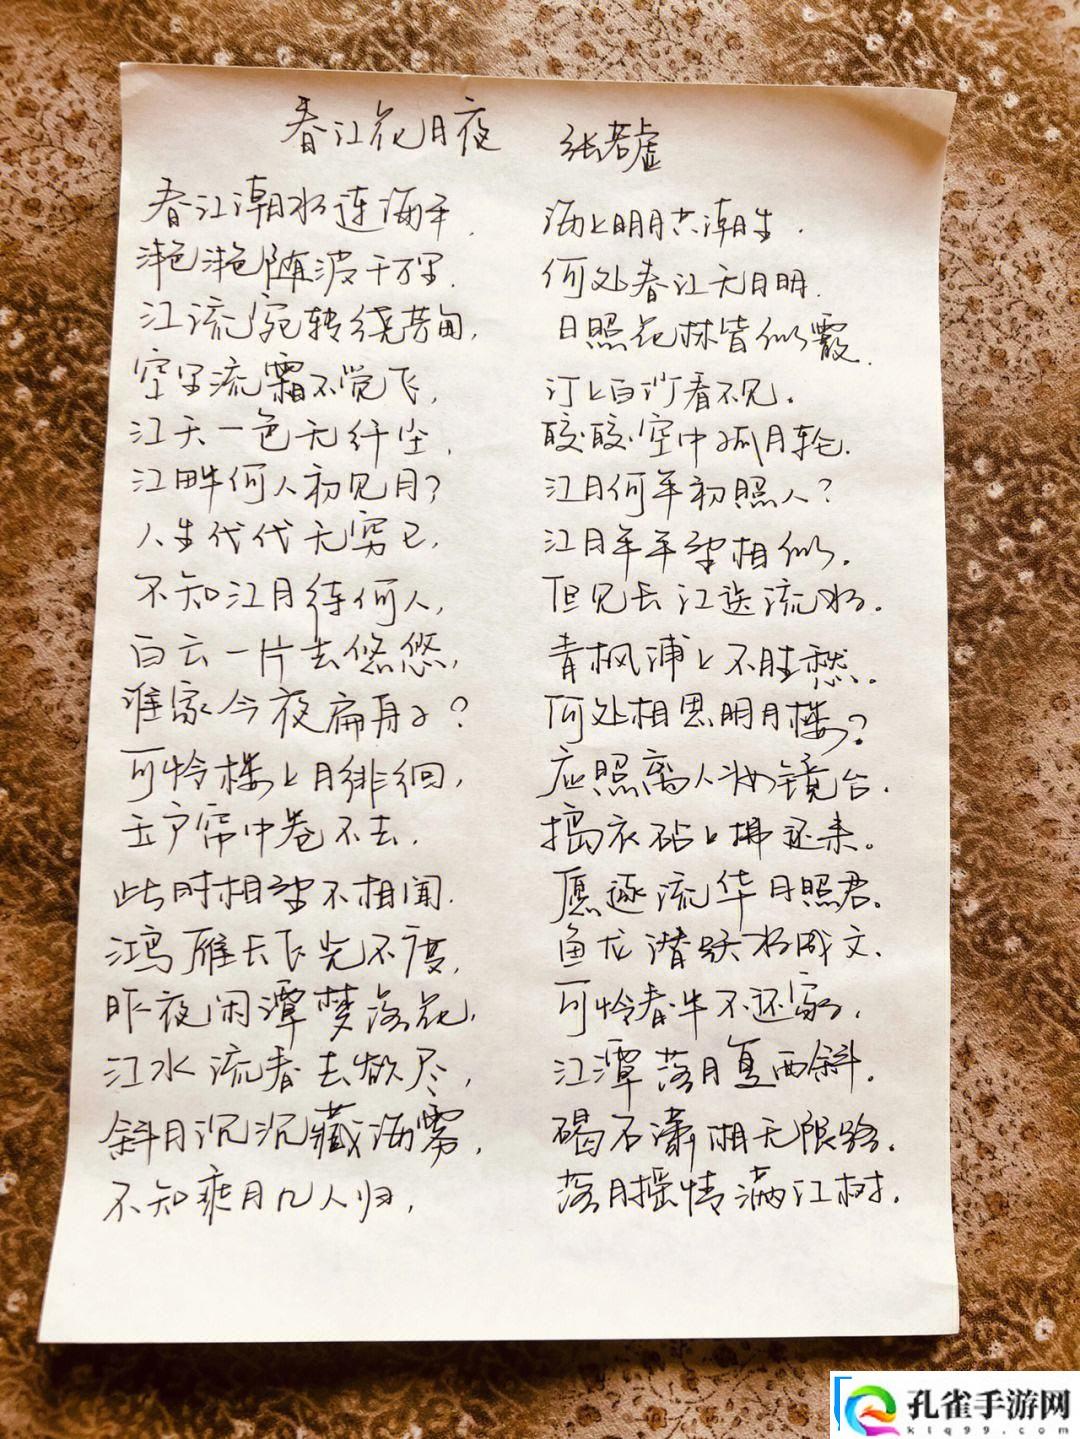 春江花月夜 张若虚
春江潮水连海平, 海上明月共潮生.
滟滟随波千万里. 何处春江无月明.
江流宛转绕芳甸, 月照花林皆似霰.
空里流霜不觉飞, 汀上白沙看不见.
江天一色无纤尘, 皎皎空中孤月轮.
江畔何人初见月? 江月何年初照人?
人生代代无穷已, 江月年年望相似.
不知江月待何人, 但见长江送流水.
白云一片去悠悠, 青枫浦上不胜愁.
谁家今夜扁舟子? 何处相思明月楼?
可怜楼上月徘徊, 应照离人妆镜台.
玉户帘中卷不去. 捣衣砧上拂还来.
此时相望不相闻. 愿逐流华月照君.
鸿雁长飞光不度, 鱼龙潜跃水成文.
昨夜闲潭梦落花, 可怜春半不还家.
江水流春去欲尽, 江潭落月复西斜.
斜月沉沉藏海雾, 碣石潇湘无限路.
不知乘月几人归, 落月摇情满江树.
孔雀手游网
ktq99.com